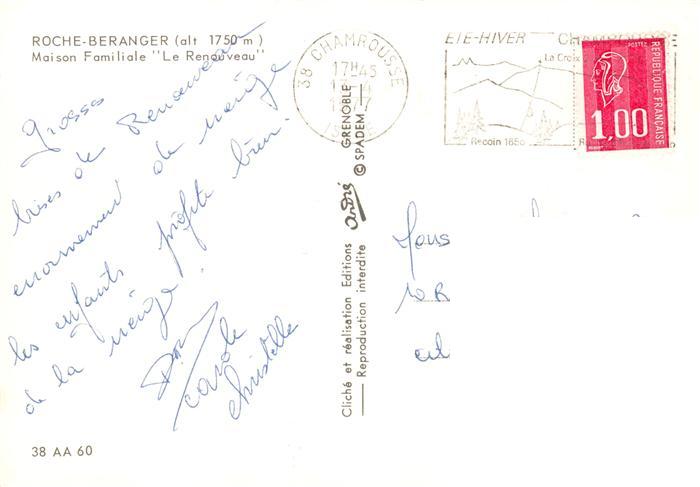 ROCHE-BERANGER (alt 1750 m)
Maison Familiale "Le Renouveau"
grosses
bises de Renouveau
enormement de neige
les enfants profite bien
de la neige.
carole
christelle
38 AA 60
Cliché et réalisation Editions André GRENOBLE
Reproduction interdite © SPADEM
38 CHAMROUSSE
17H45
ISÈRE
ETE-HIVER CHAMROUSSE
La Croix
Recoin 1650
POSTES
REPUBLIQUE FRANÇAISE
1,00